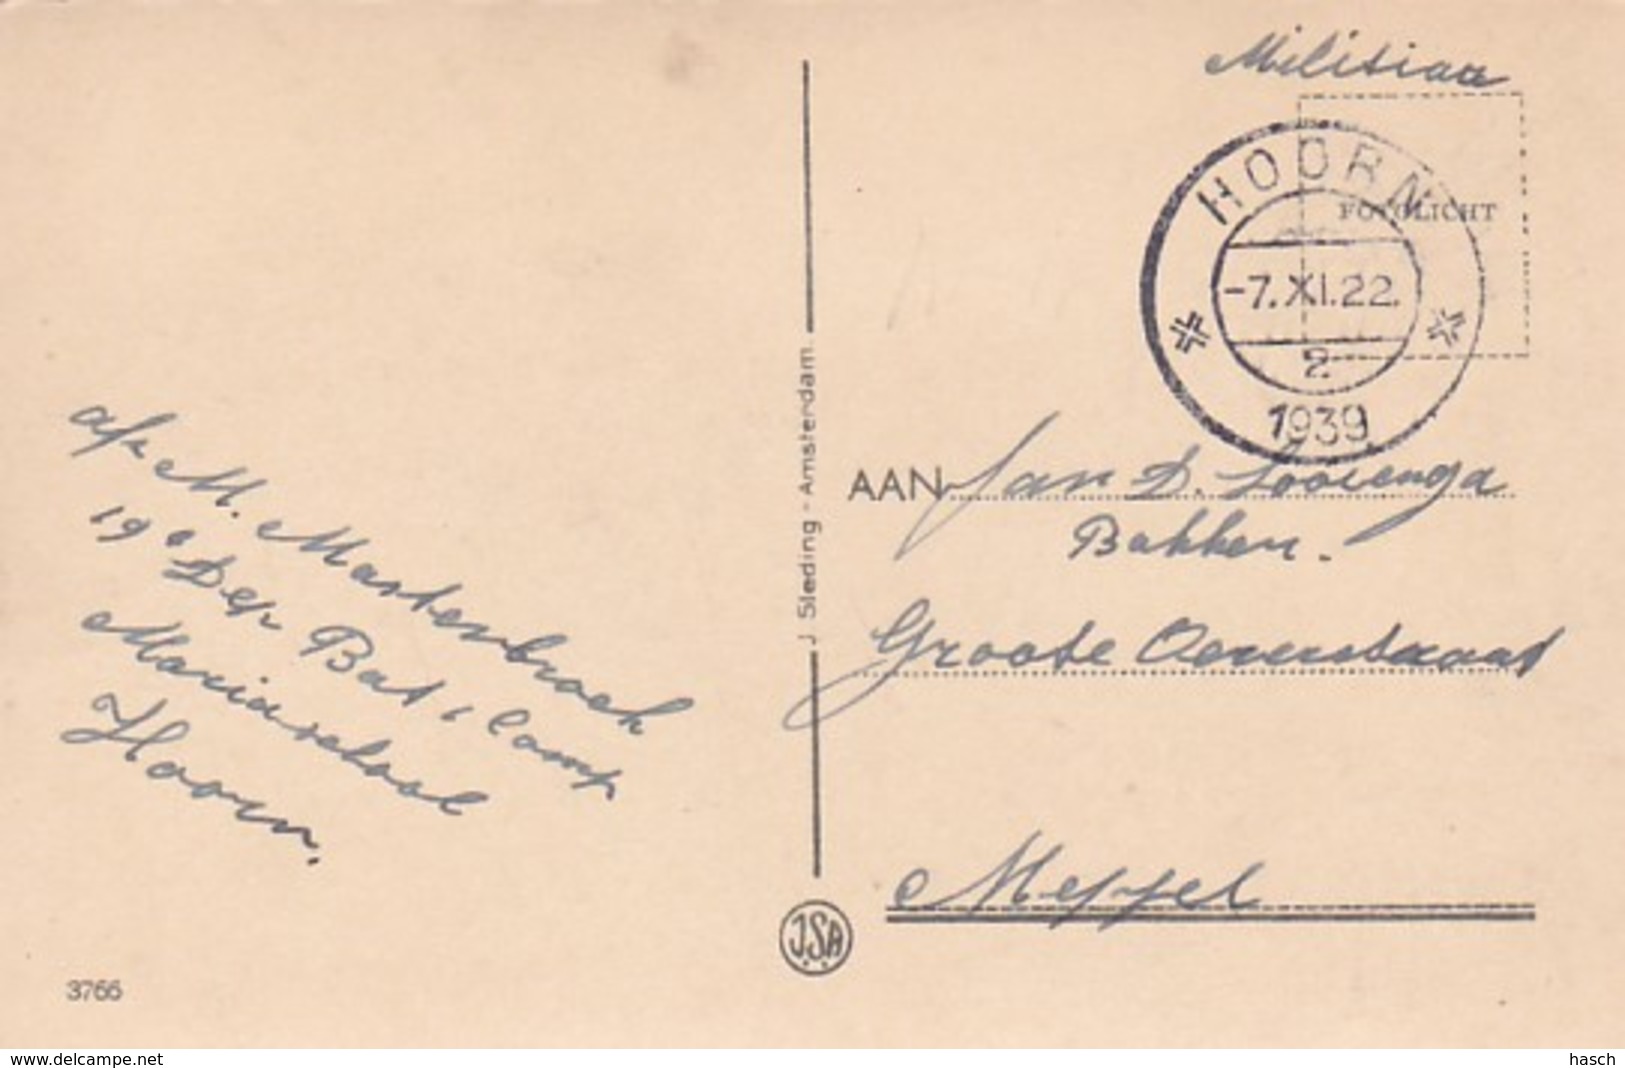 Militiaa
HOORN
FOTOLICHT
-7.XI.22.
2
1939
AAN Jan D. Looienga
Bakker.
Groote Oeverstraat
Meppel
a/z M. Mastenbroek
19e Dep Bat 1 Comp
Mariaschool
Hoorn.
J Sleding - Amsterdam.
J.S.A
3766
www.delcampe.net
hasch